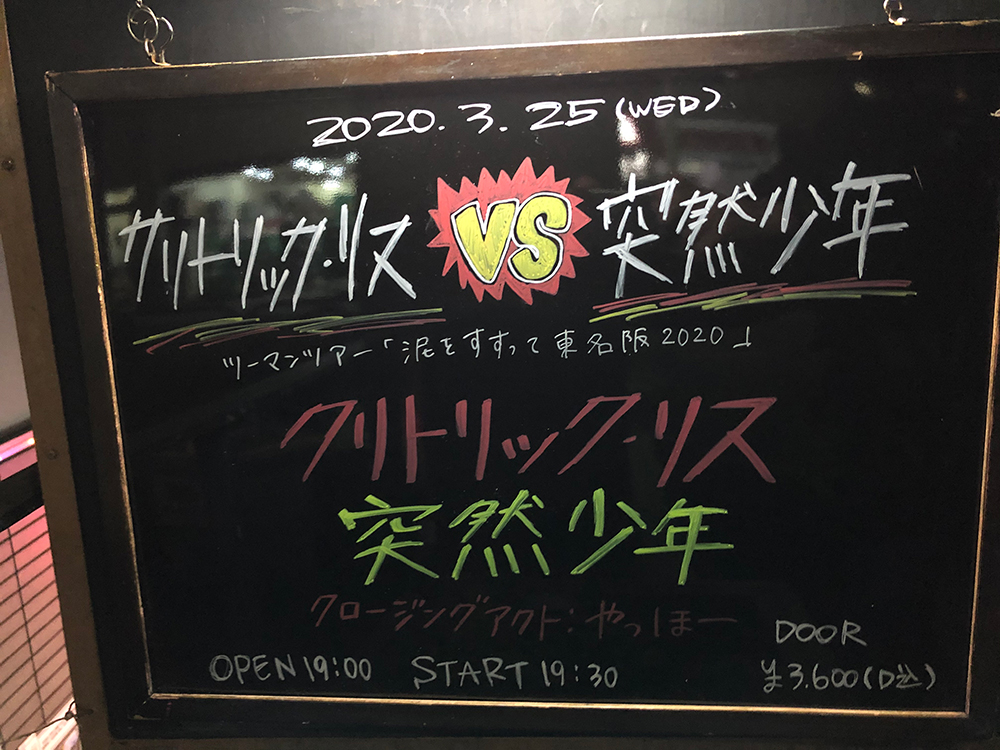 2020.3.25(WED)
クリトリック・リス VS 突然少年
ツーマンツアー「泥をすすって東名阪2020」
クリトリック・リス
突然少年
クロージングアクト:やっほー
DOOR
OPEN 19:00 START 19:30 ¥3.600(D込)